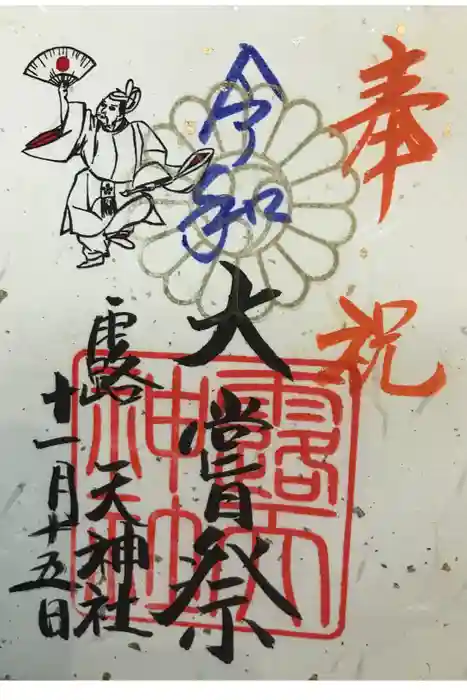 奉祝
令和
大嘗祭
露天神社
十一月十五日
露天神社